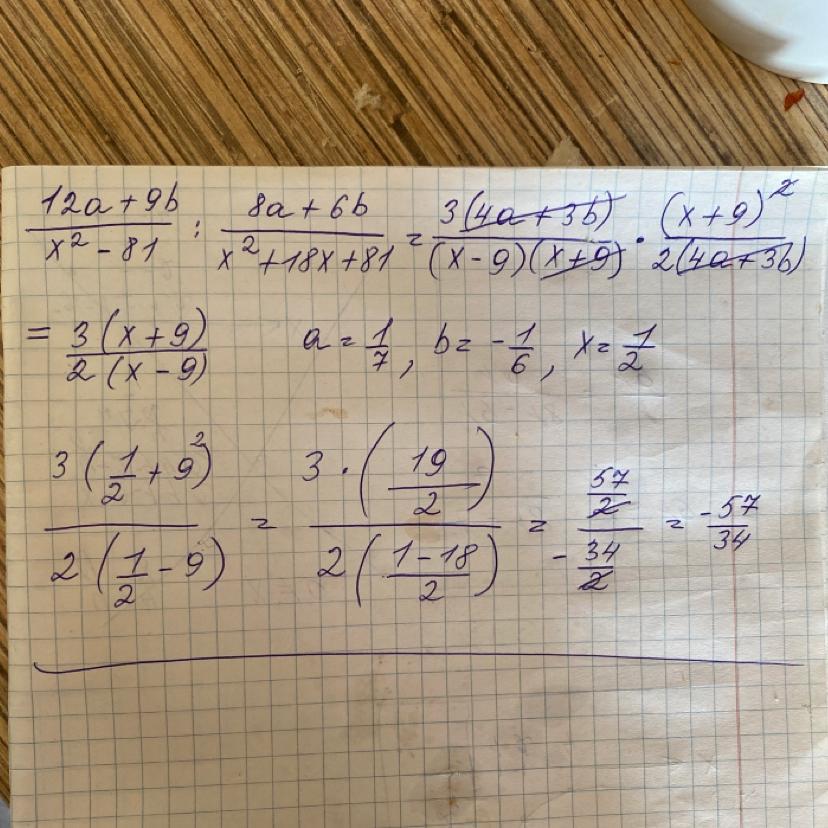 (12a + 9b)/(x² - 81) : (8a + 6b)/(x² + 18x + 81) = 3(4a + 3b)/((x - 9)(x + 9)) · (x + 9)²/(2(4a + 3b))
= 3(x + 9)/(2(x - 9)) a = 1/7, b = -1/6, x = 1/2
3(1/2 + 9²)/(2(1/2 - 9)) = 3 · (19/2)/(2((1 - 18)/2)) = (57/2)/(-34/2) = -57/34